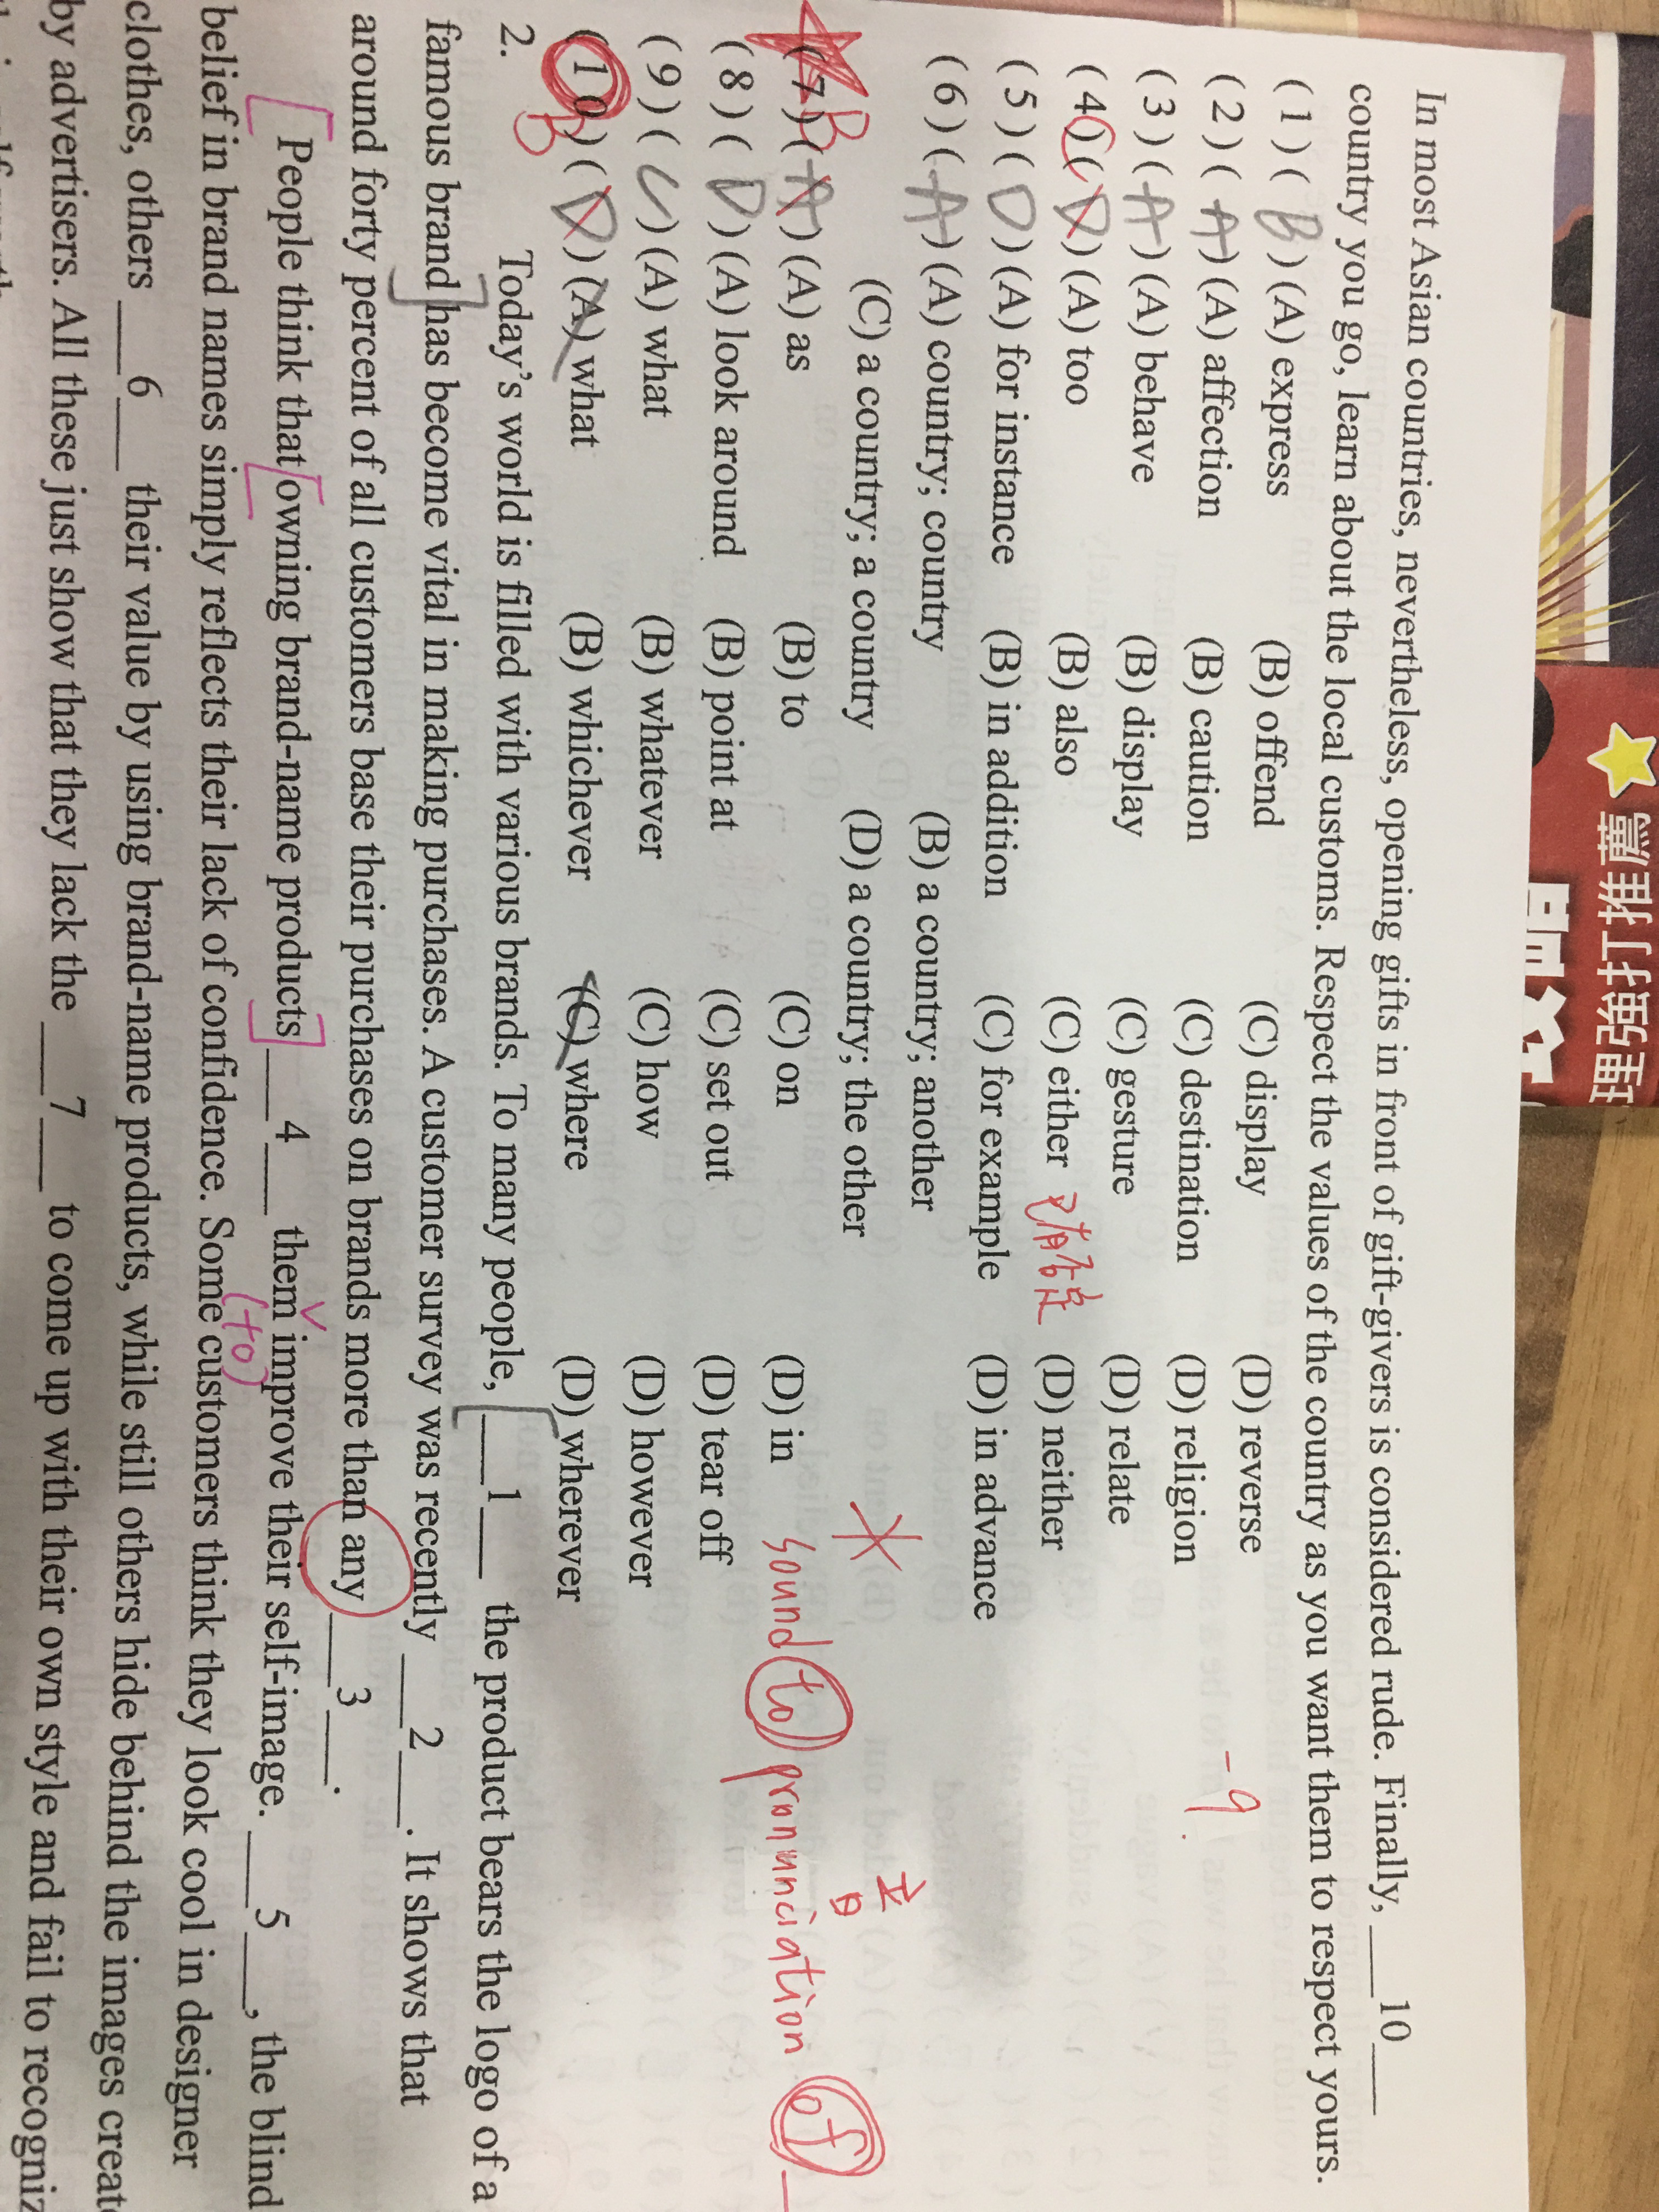 強打推薦
In most Asian countries, nevertheless, opening gifts in front of gift-givers is considered rude. Finally, ___10___
country you go, learn about the local customs. Respect the values of the country as you want them to respect yours.
-9
( 1 ) ( B ) (A) express (B) offend (C) display (D) reverse
( 2 ) ( A ) (A) affection (B) caution (C) destination (D) religion
( 3 ) ( A ) (A) behave (B) display (C) gesture (D) relate
( 4 ) C ( D ) (A) too (B) also (C) either (D) neither
( 5 ) ( D ) (A) for instance (B) in addition (C) for example (D) in advance
( 6 ) ( A ) (A) country; country (B) a country; another
(C) a country; a country (D) a country; the other
( 7 ) B ( A ) (A) as (B) to (C) on (D) in sound to pronunciation of
( 8 ) ( D ) (A) look around (B) point at (C) set out (D) tear off
( 9 ) ( C ) (A) what (B) whatever (C) how (D) however
( 10 ) B ( D ) (A) what (B) whichever (C) where (D) wherever
2. Today's world is filled with various brands. To many people, ___1___ the product bears the logo of a
famous brand has become vital in making purchases. A customer survey was recently ___2___. It shows that
around forty percent of all customers base their purchases on brands more than any ___3___.
People think that owning brand-name products ___4___ them improve their self-image. ___5___, the blind
(to)
belief in brand names simply reflects their lack of confidence. Some customers think they look cool in designer
clothes, others ___6___ their value by using brand-name products, while still others hide behind the images creat
by advertisers. All these just show that they lack the ___7___ to come up with their own style and fail to recogniz